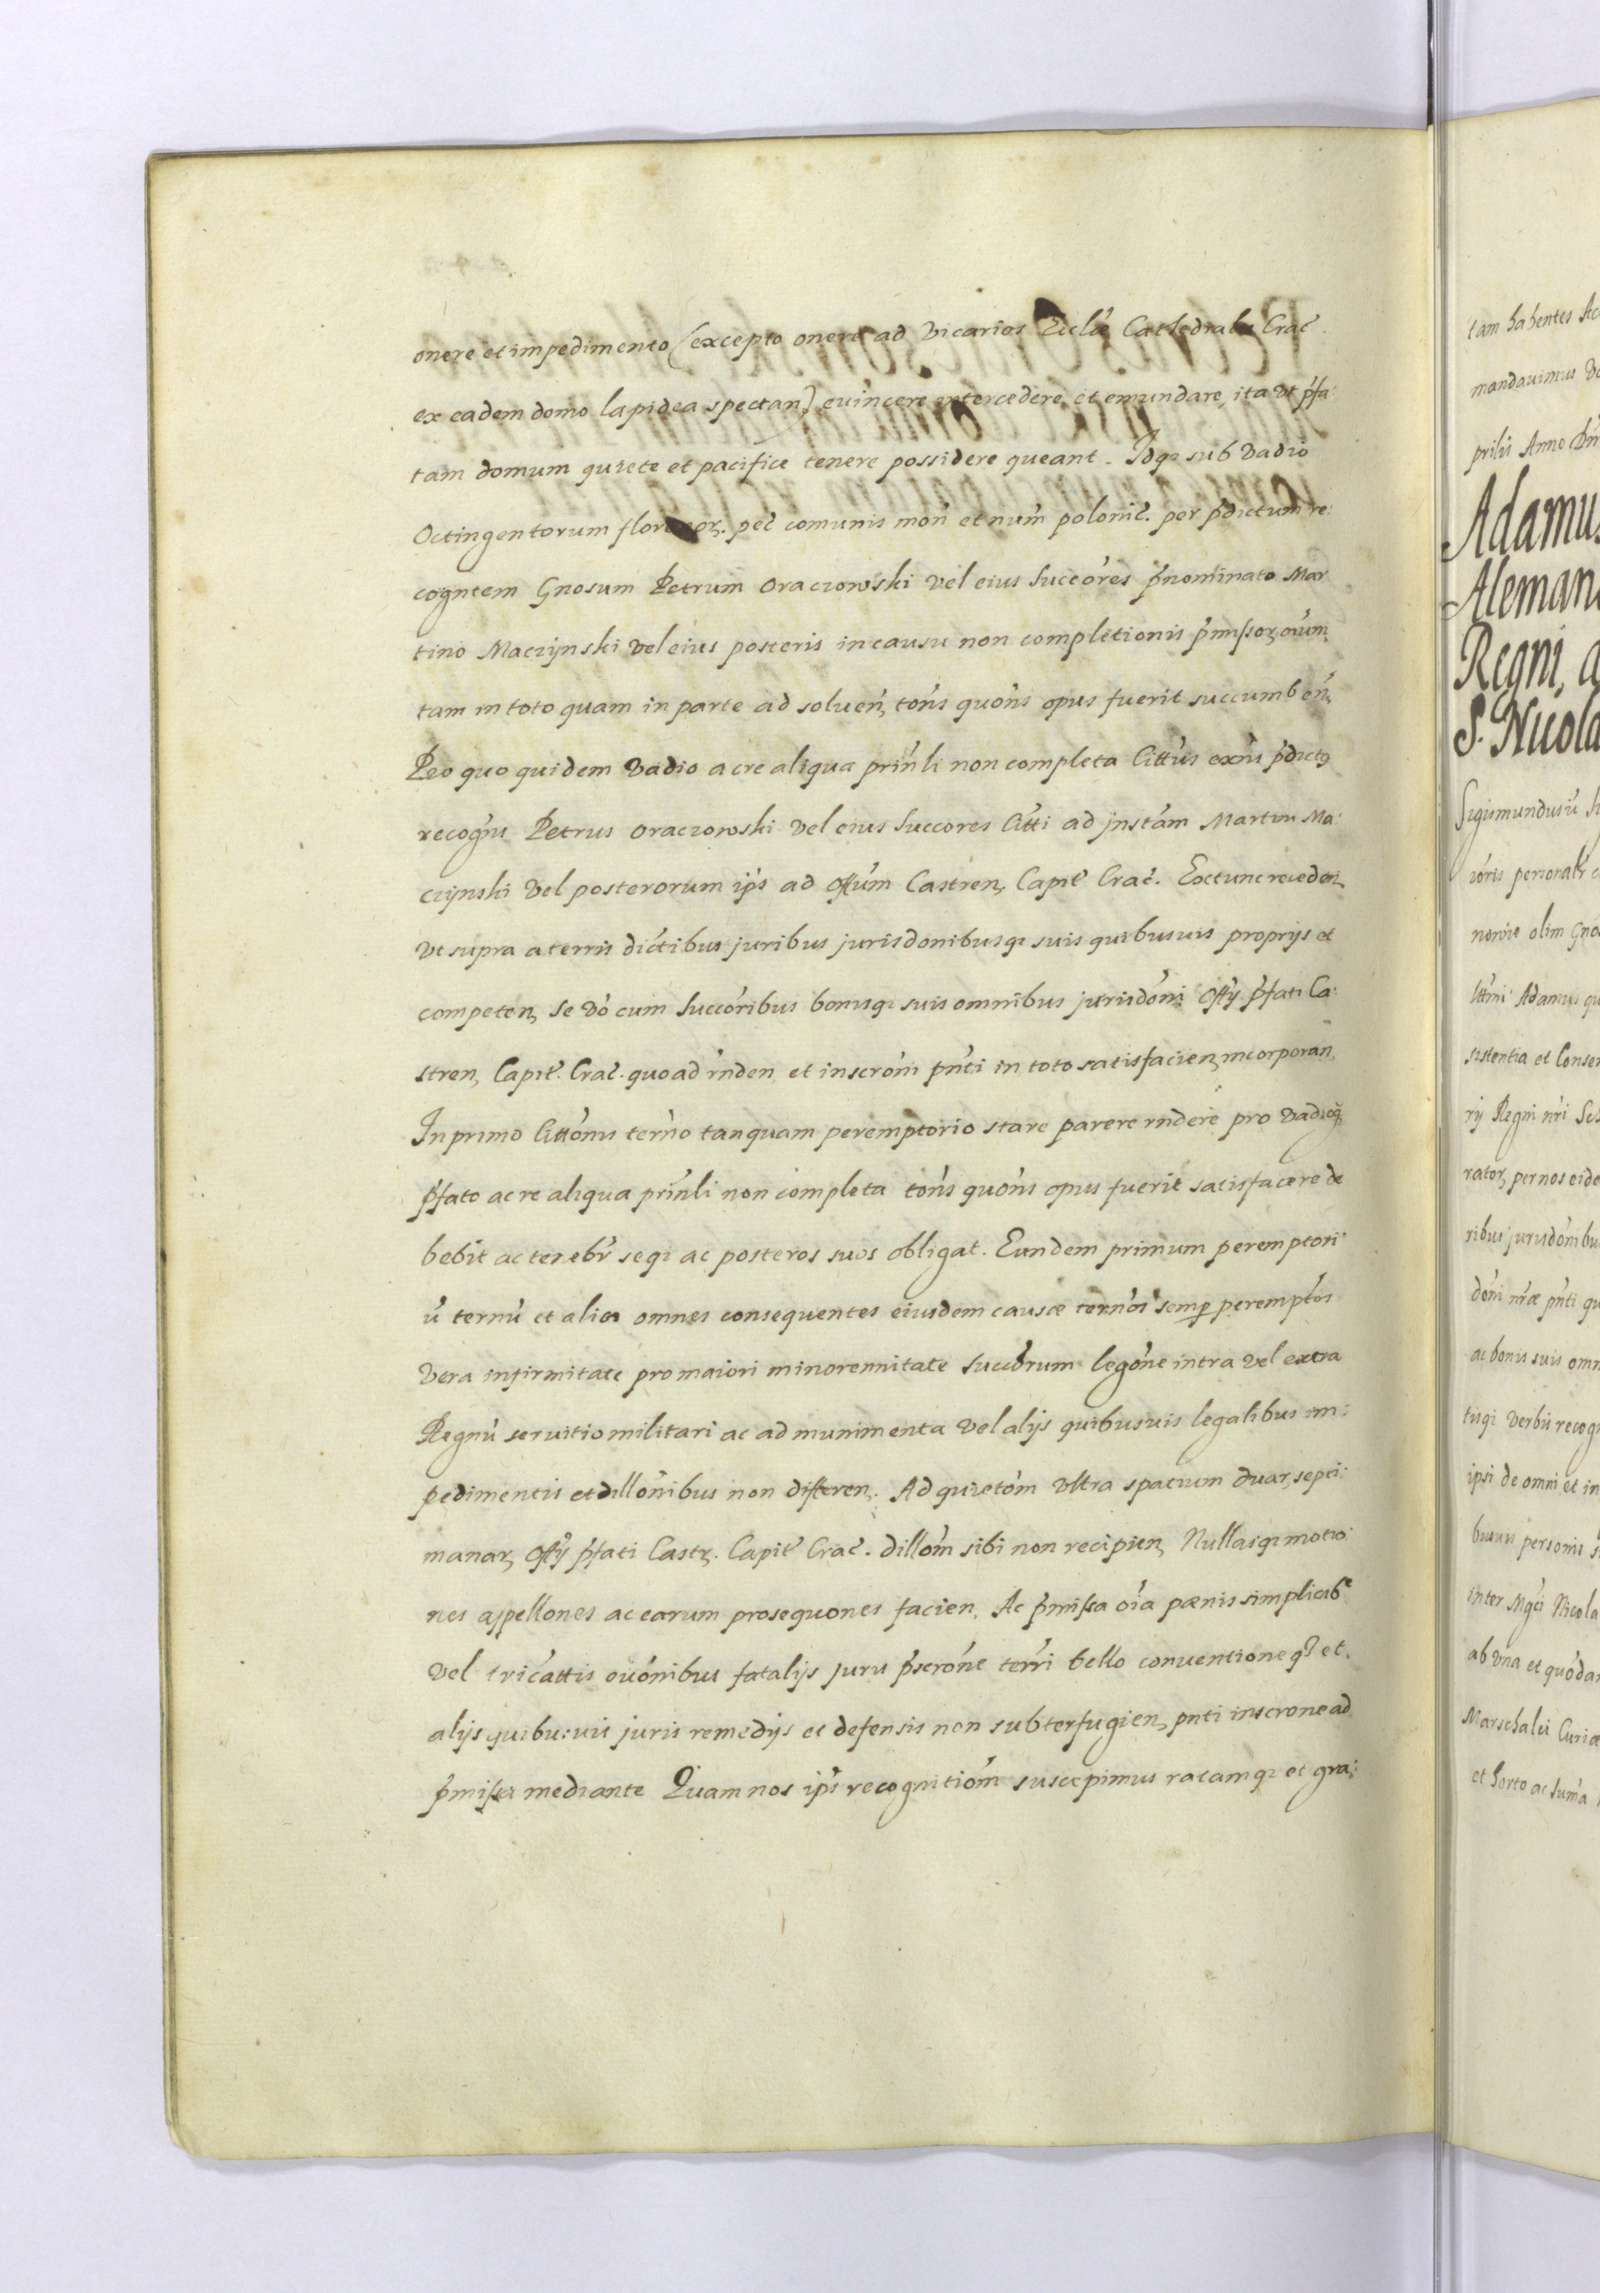 onere et impedimento (excepto onere ad Vicarios Eccłæ Cathedralis Crac̃.
ex eadem domo lapidea spectan) euincere intercedere et emundare, ita vt p̃fa:
tam domum quiete et pacifice tenere possidere queant. Idq; sub vadio
Octingentorum florenor. pec̃ comunis mon̄ et num̄ polonic̃. per p̃dictum re:
cogntem Gnosum Petrum Oraczowski vel eius Succores p̃nominato Mar
tino Maczynski vel eius posteris in causu non completionis p̃missor oium,
tam in toto quam in parte ad soluen, tons̃ quons̃ opus fuerit succumben,
Pro quo quidem vadio ac re aliqua prin̄li non completa
recogn̄s Petrus Oraczowski vel eius Succores citti ad jnstam Martini Ma:
czynski vel posterorum ips̃ ad Offum Castren, Capit̃ Crac̃. Extunc receden,
vt supra a terris dictibus juribus jurisdonibusq; suis quibusuis proprijs et
competen, se vo cum Succoribus bonisq; suis omnibus jurisdoni Offij p̃fati Ca:
stren, Capit̃. Crac̃. quo ad rnden et inscroni p̃nti in toto satisfacien, incorporan,
In primo cittonis terno tanquam peremptorio stare parere rndere pro vadioq;
p̃fato ac re aliqua prin̄li non completa tons̃ quons̃ opus fuerit satisfacere de
bebit ac tenebr̃ seq; ac posteros suos obligat. Eundem primum peremptori:
ũ ternũ et alios omnes consequentes eiusdem causæ ternos semp̱ peremptos
vera infirmitate pro maiori minorennitate Succorum legone intra vel extra
Regnũ seruitio militari ac ad munimenta vel alijs quibusuis legalibus im:
pedimentis et dillonibus non differen,. Ad quietom vltra spatium duar, septi:
manar, Offij p̃fati Castr,. Capit̃ Crac̃. dillom sibi non recipien, Nullasq; motio:
nes appellones ac earum prosequones facien, Ac p̃missa oia pænis simplicibs
vel tricattis fatalijs juris p̃scrone terri bello conuentione q; et.
alijs quibu:uis juris remedijs et defensis non subterfugien, pnti inscrone ad
p̃missa mediante Quam nos ips̃ recognitiom suscepimus ratamq; et gra:
tam habentes Ac
mandauimus
prilis Anno
Adamus
Regni, a
S. Nicola
Sigismundus
personalr̃
olim Gno
Adamus qu
sistentia et Consen
rij Regni nri
rator, per nos eide
ribus jurisdonibu
doni nræ pnti qu
ac bonis suis omn
tisq; verbis recog
ipsi de omni et in
personis
inter Mgci Nicola
ab vna et quoda
Marschalci Curiæ
et horto ac suma